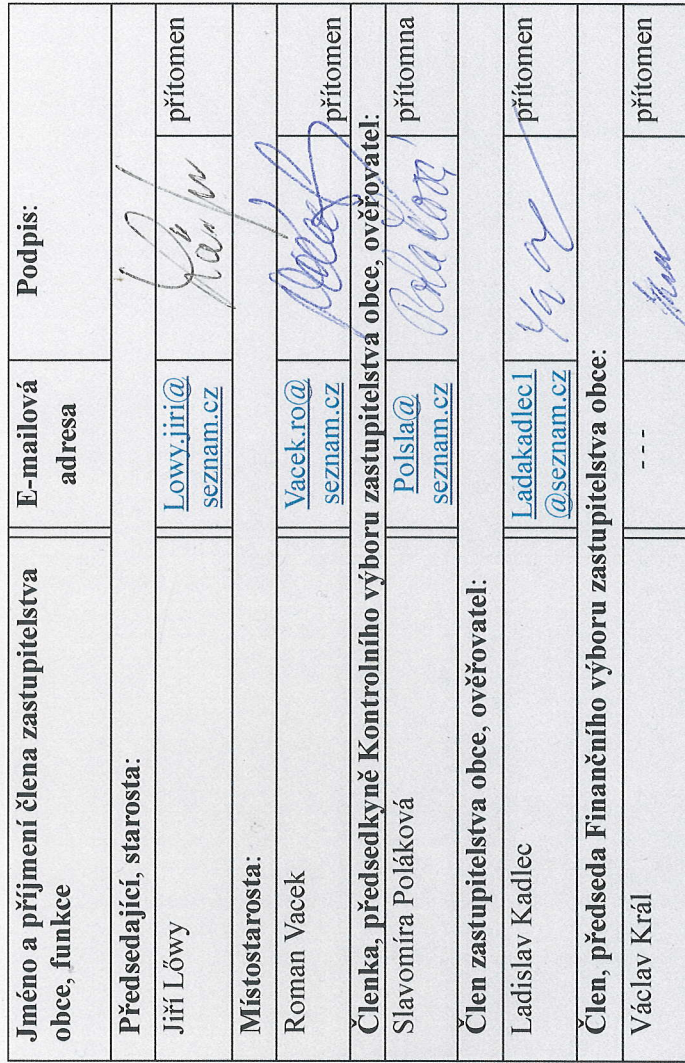 Jméno a příjmení člena zastupitelstva
obce, funkce
E-mailová
adresa
Podpis:
Předsedající, starosta:
Jiří Lőwy
Lowy.jiri@
seznam.cz
přítomen
Místostarosta:
Roman Vacek
Vacek.ro@
seznam.cz
přítomen
Členka, předsedkyně Kontrolního výboru zastupitelstva obce, ověřovatel:
Slavomíra Poláková
Polsla@
seznam.cz
Poláková
přítomna
Člen zastupitelstva obce, ověřovatel:
Ladislav Kadlec
Ladakadlec1
@seznam.cz
přítomen
Člen, předseda Finančního výboru zastupitelstva obce:
Václav Král
---
přítomen